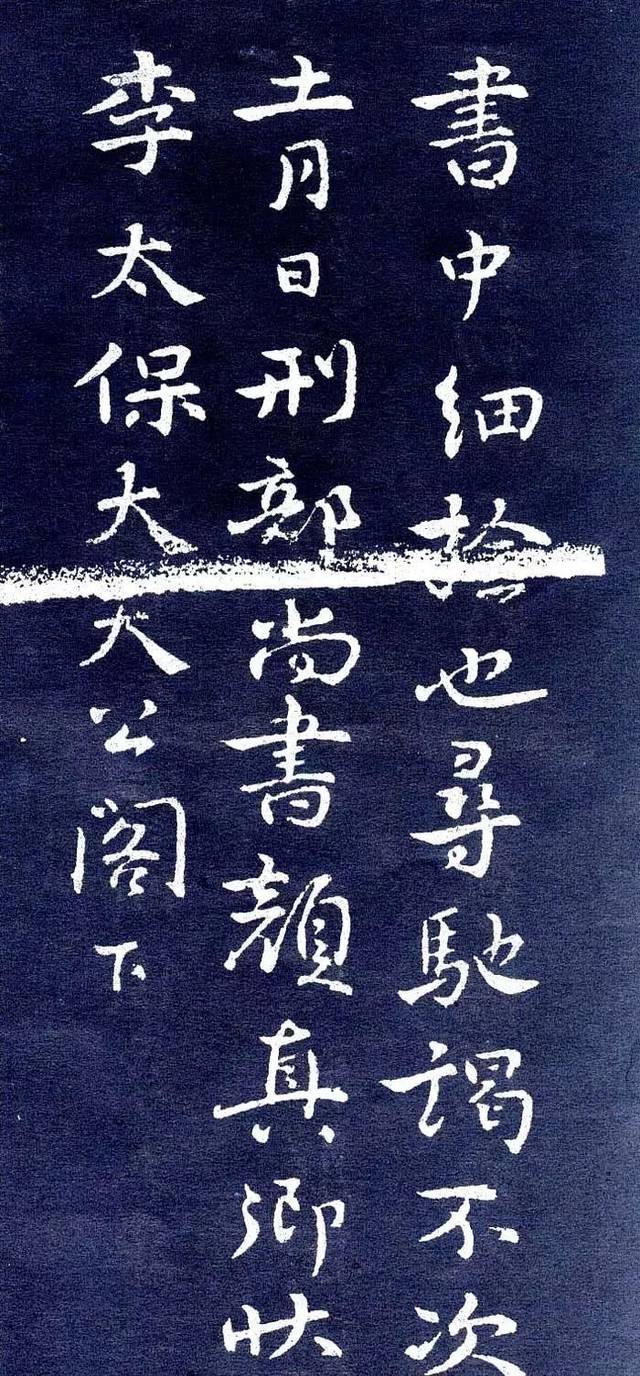 書中細撿也尋馳謁不次
十一月日刑部尚書顏真卿狀
李太保大夫公閣下